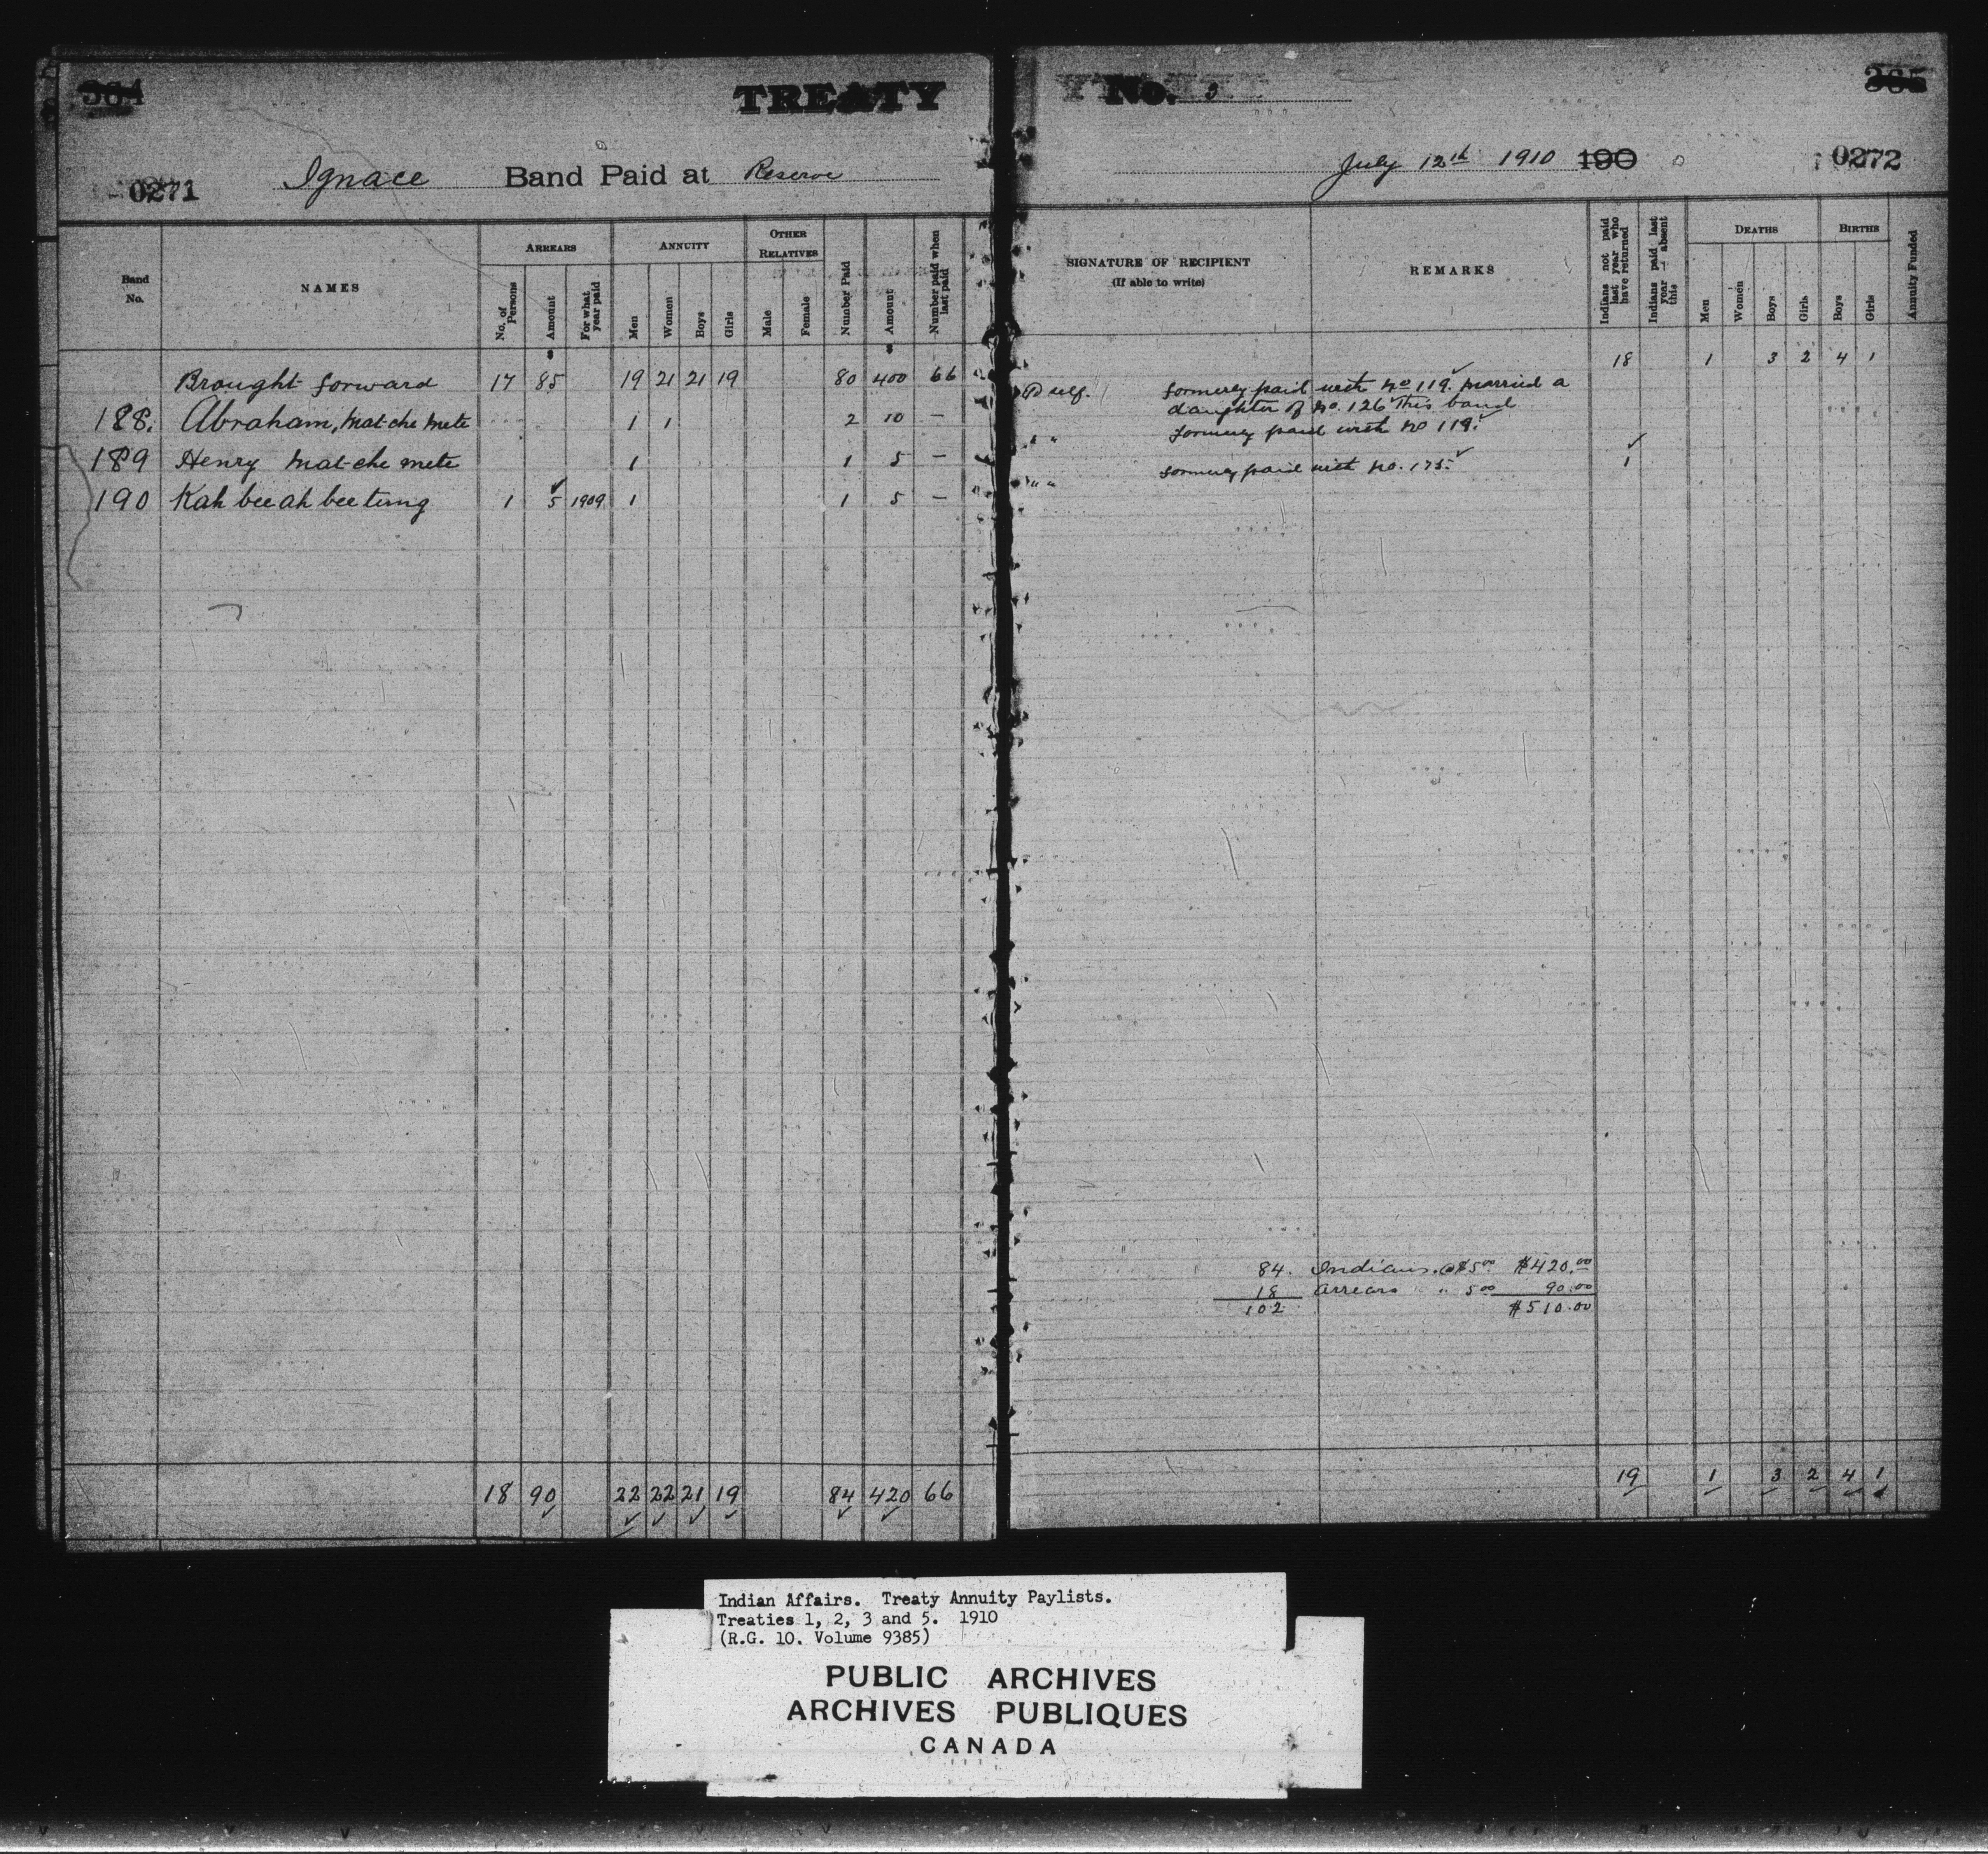 364 TREATY No. 3 365
0271 Ignace Band Paid at Reserve July 12th 1910 190 0272
Band No. NAMES ARREARS ANNUITY OTHER RELATIVES Number Paid Amount Number paid when last paid
No. of Persons Amount For what year paid Men Women Boys Girls Male Female
SIGNATURE OF RECIPIENT (If able to write) REMARKS Indians not paid last year who have returned Indians paid last year absent this DEATHS BIRTHS Annuity Funded
Men Women Boys Girls Boys Girls
$ $
Brought forward 17 85 19 21 21 19 80 400 66 18 1 3 2 4 1
188. Abraham, Mat-che mete 1 1 2 10 —
189 Henry Mat-che mete 1 1 5 —
190 Kah bee ah bee tung 1 5 1909 1 1 5 —
formerly paid with No 119. Married a
daughter of No. 126 This band
" " formerly paid with No 119.
" " formerly paid with No. 175. 1
84. Indians @ $5.00 $420.00
18 arrears " 5.00 90.00
102 $510.00
18 90 22 22 21 19 84 420 66 19 1 3 2 4 1
Indian Affairs. Treaty Annuity Paylists.
Treaties 1, 2, 3 and 5. 1910
(R.G. 10. Volume 9385)
PUBLIC ARCHIVES
ARCHIVES PUBLIQUES
CANADA